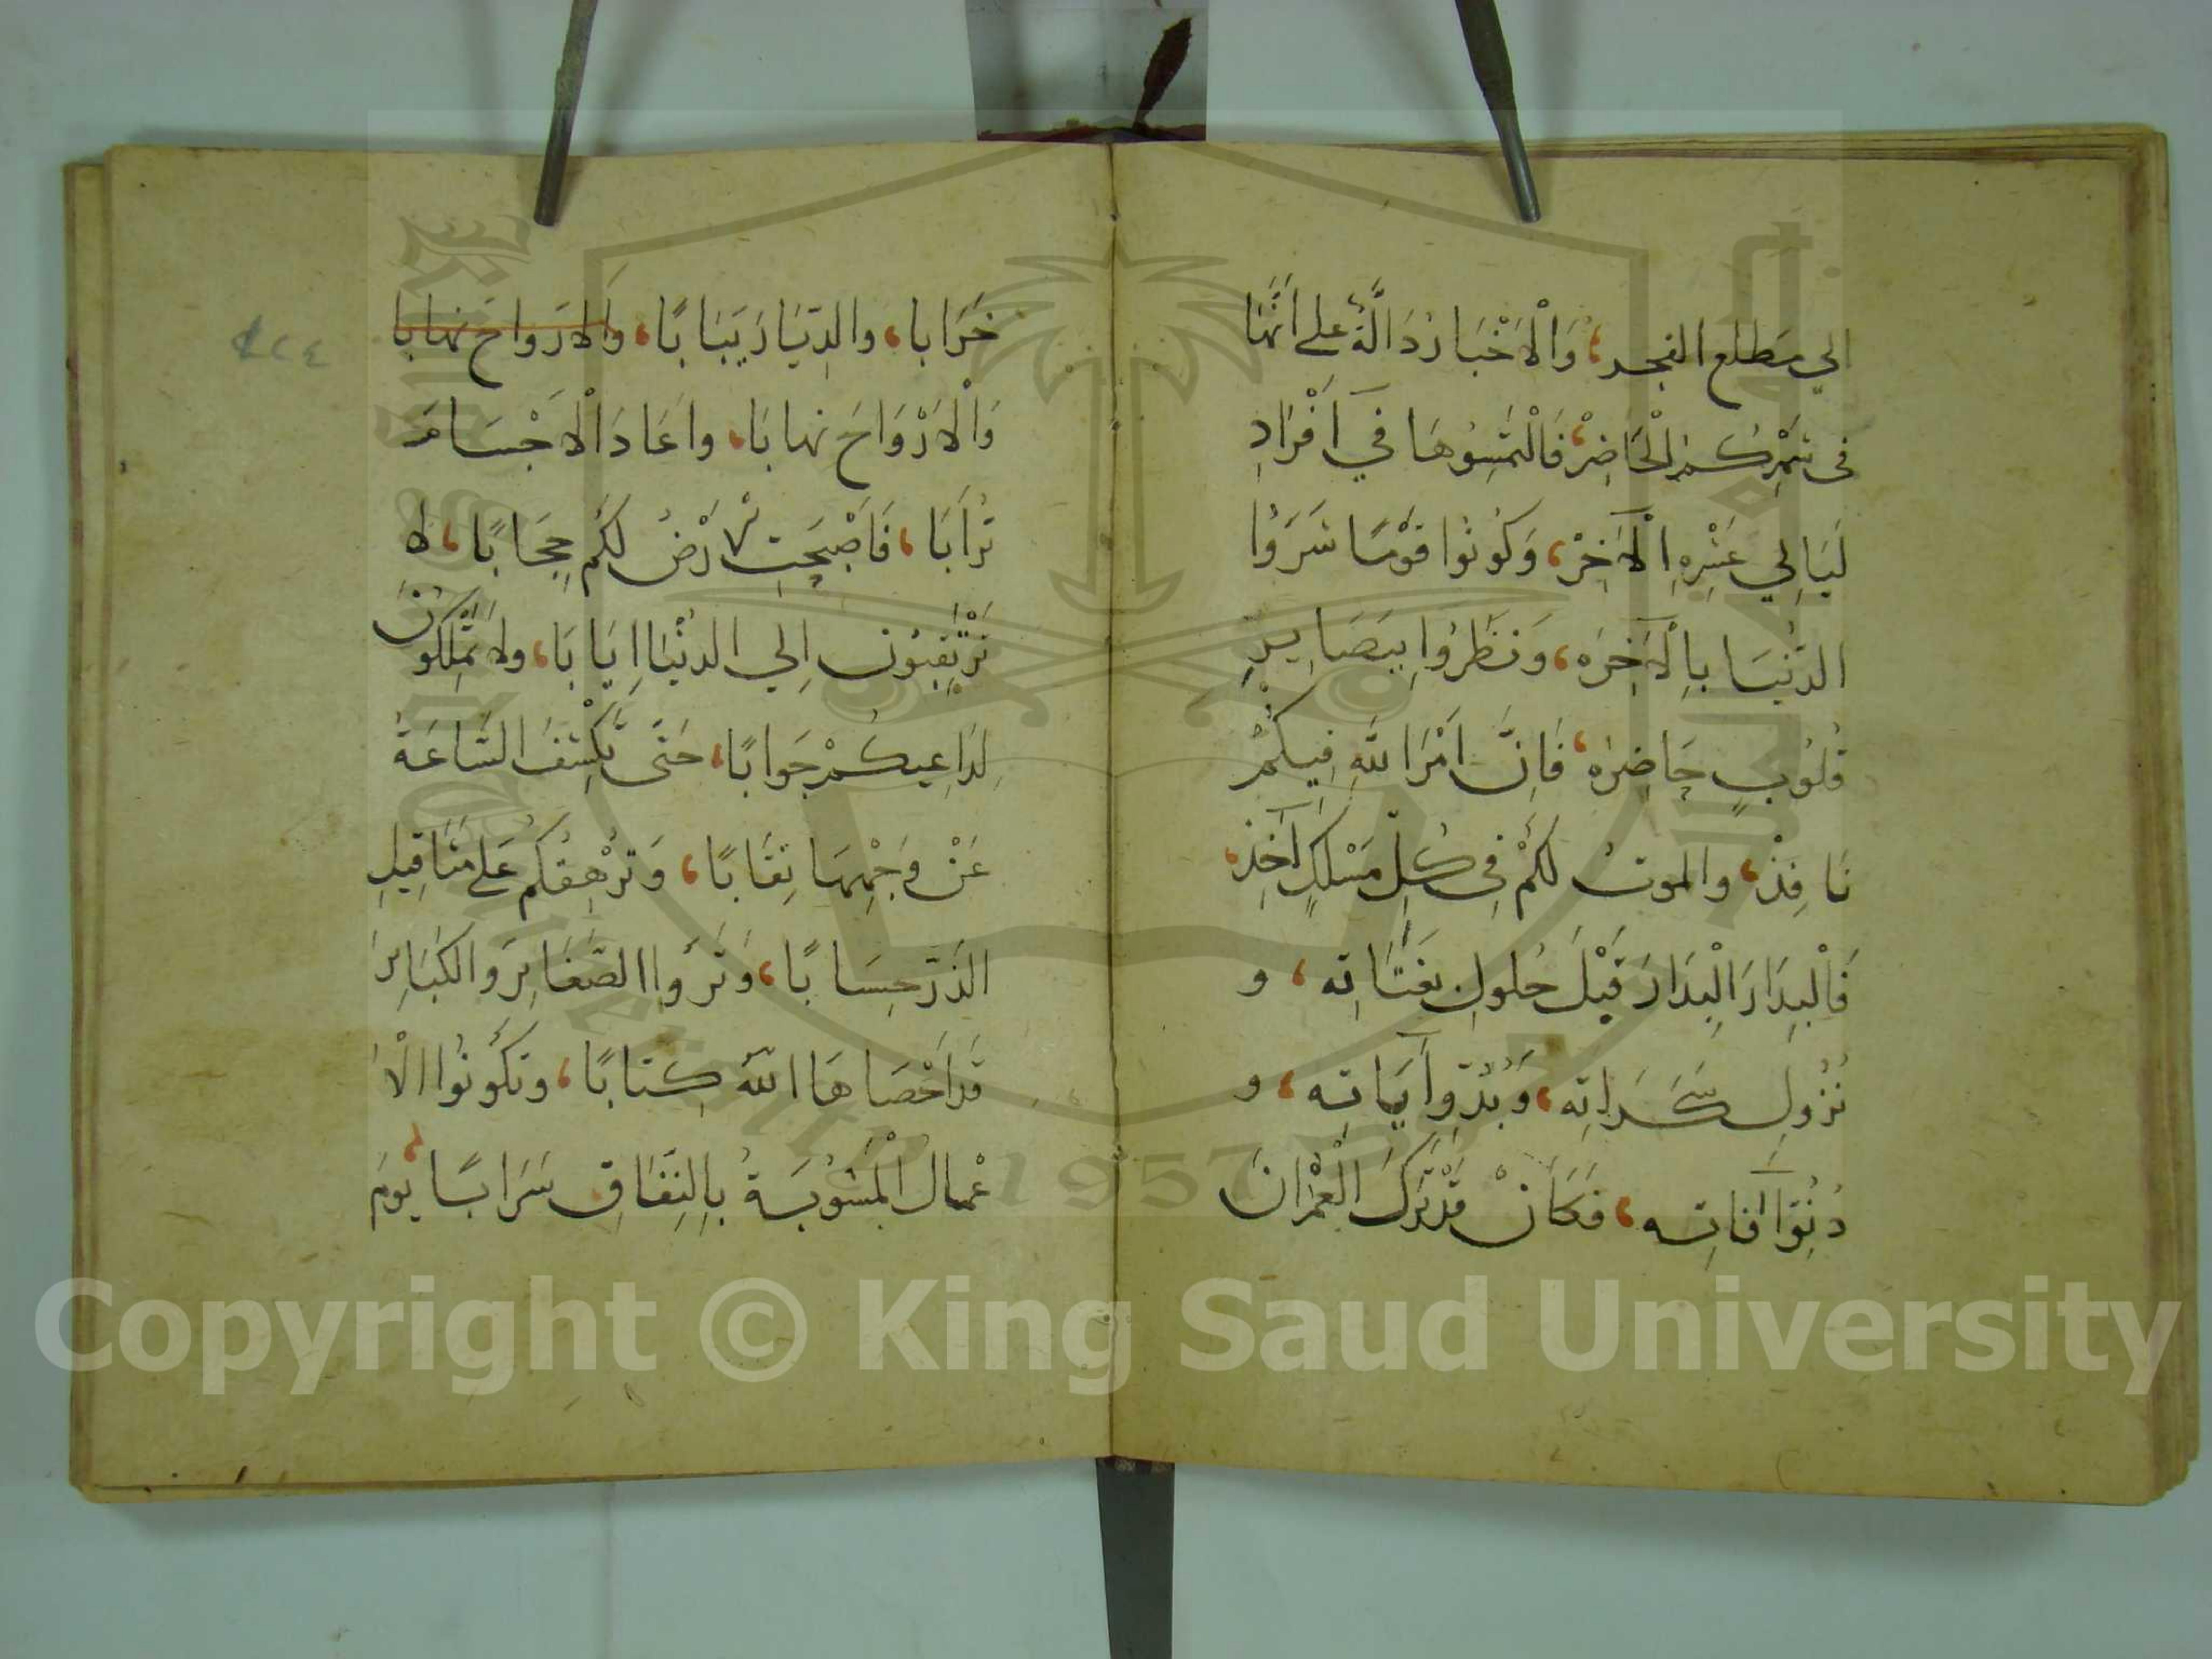 الي مَطلع الفجر، وَالْاَخْبَارُ دَالَّةٌ علي اَنَّهَا
في شهْرِكُمُ الْحَاضِرْ، فَالْتَمِسُوهَا في اَفْرَادِ
لَيَالِي عَشْرِهِ الْآخِرْ، وَكُونُوا قَوْمًا شَرَوُا
الدُّنْيَا بِالْآخِرَه، وَنَظَرُوا بِبَصَايِرِ
قُلُوبٍ حَاضِرَه، فَاِنَّ اَمْرَ اللَّهِ فِيكُمْ
نَافِذْ، والموتُ لكُمْ فِي كُلِّ مَسْلكٍ آخِذْ،
فَالْبِدَارَ الْبِدَارَ قَبْلَ حُلولِ بَغَتَاتِه، و
نُزُولِ سَكَرَاتِه، وَبُدُوِّ آيَاتِه، و
دُنُوِّ آفاتِه، فكَاَنْ قَدْ تَرَكَ الْعُمْرَانَ
خَرَابا، والدِّيَارَ يَبَابًا، وَالاَرَواحَ نهابا
وَالْاَرْوَاحَ نهابَا، واَعَادَ الْاَجْسَامَ
تُرَابَا، فَاَصْبَحَتِ الْاَرْضُ لكُم حِجَابًا، لا
تَرْتَقِبُونَ اِلي الدنْيَا اِيَابَا، ولَا تَمْلِكُونَ
لِدَاعِيكُمْ جَوابًا، حَتَّى تَكْشِفَ السَّاعَةُ
عَنْ وَجْهِهَا نِقَابًا، وَتُرْهِقكُم عَلي مَثَاقِيلِ
الذَرِّ حِسَابًا، وَتَرَوا الصَّغَايِرَ والكَبَايِرَ
قَد اَحْصَاهَا اللَّهُ كِتابًا، وتكُونُوا الْاَ
عْمالُ الْمَشُوبَةُ بِالنِّفَاقِ سَرَابًا، يومَ
Copyright © King Saud University
1957